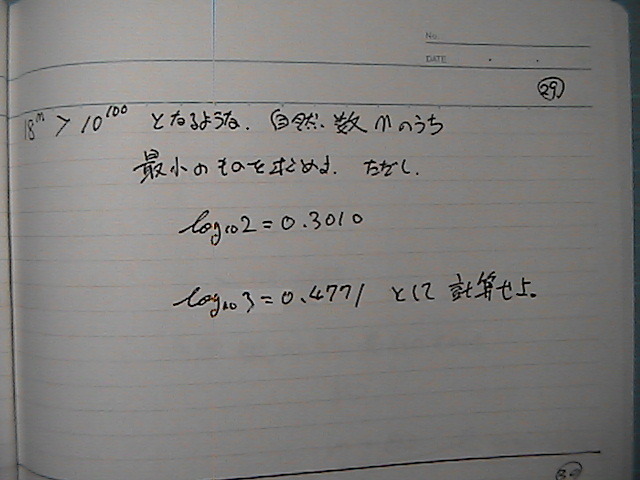 No.
DATE
29
18ⁿ > 10¹⁰⁰ となるような. 自然数 n のうち
最小のものを求めよ. ただし.
log₁₀2 = 0.3010
log₁₀3 = 0.4771 として 計算せよ。
30